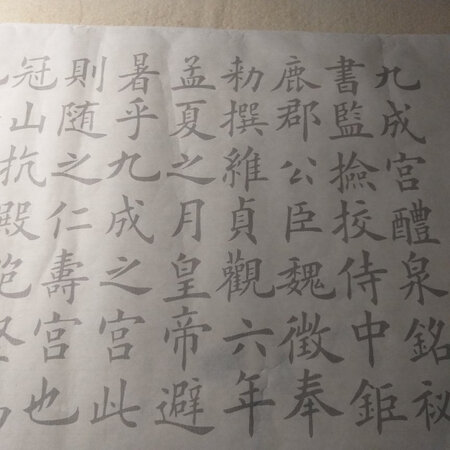 九成宮醴泉銘祕
書監撿挍侍中鉅
鹿郡公臣魏徵奉
勑撰維貞觀六年
孟夏之月皇帝避
暑乎九成之宮此
則随之仁壽宮也
冠山抗殿絶